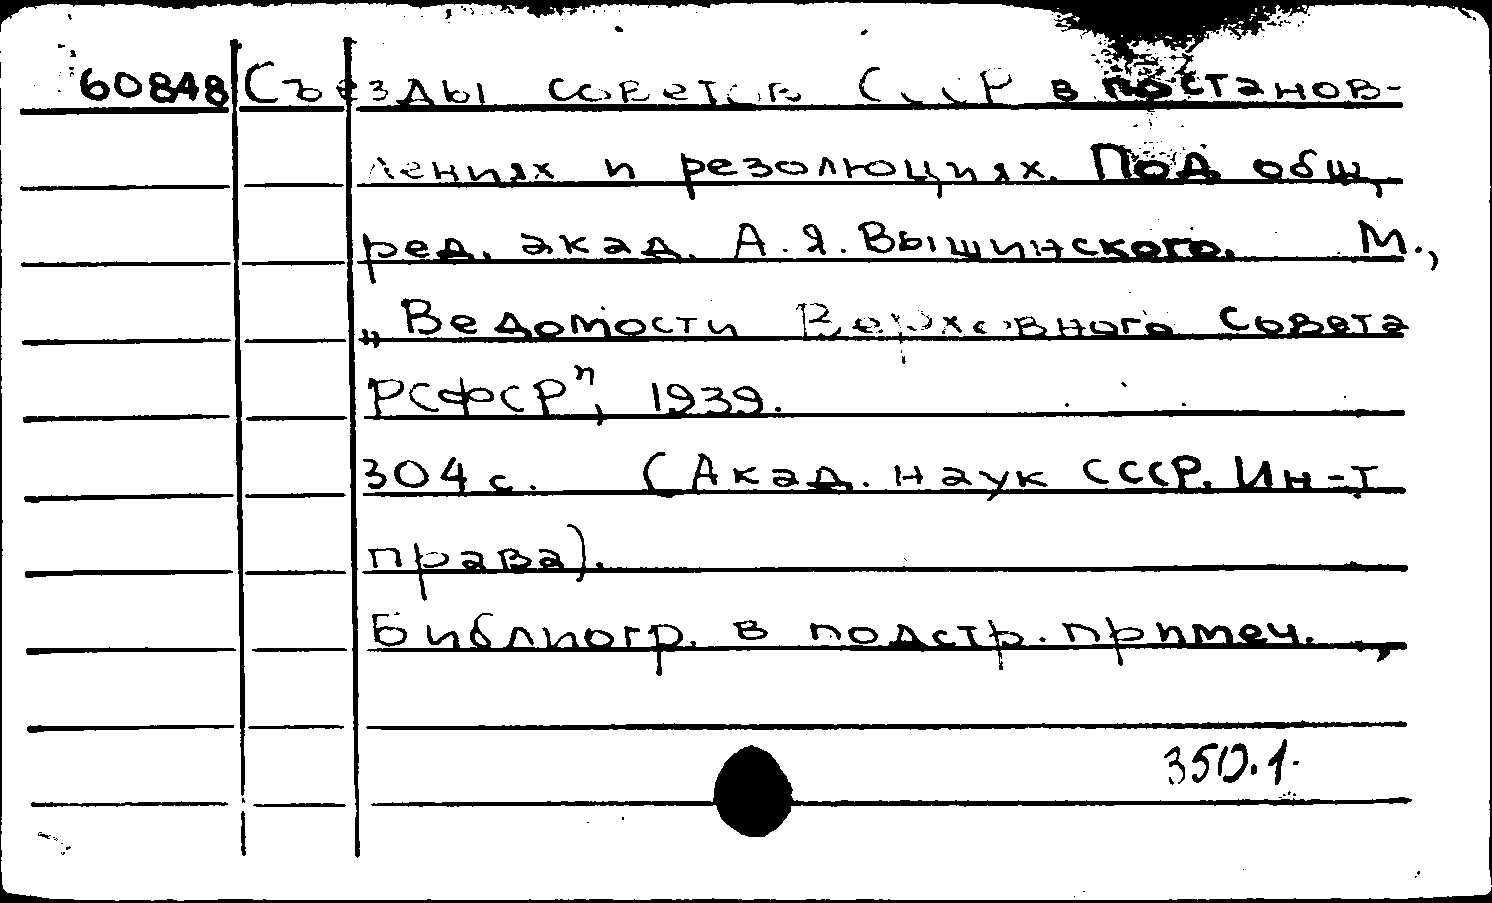 60848 Съезды советов СССР в постанов-
лениях и резолюциях. Под общ.
ред. акад. А.Я. Вышинского. М.,
„Ведомости Верховного Совета
РСФСР", 1939.
304 с. (Акад. наук СССР. Ин-т
права).
Библиогр. в подстр. примеч.
350.1.